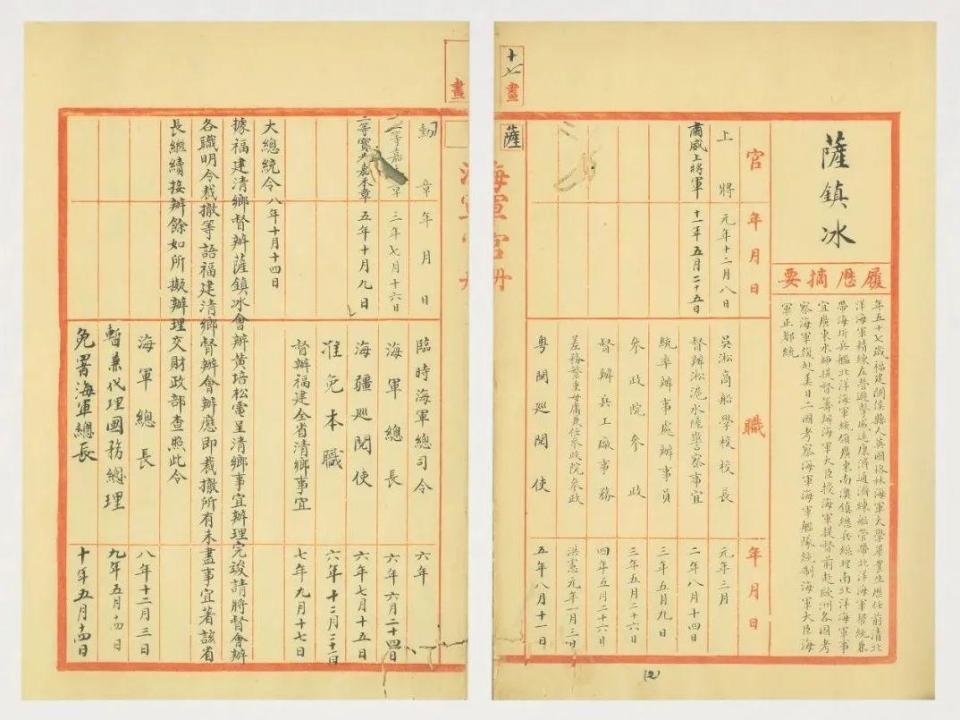 十七
畫
薩
薩鎮冰
履歷摘要
年五十七歲福建閩侯縣人英國格林海軍大學畢業生歷任前清北
洋海軍精練左營遊擊威遠康濟通濟練船管帶北洋海軍幫統兼
帶海圻兵艦北洋海軍統領廣東南澳鎮總兵總理南北洋海軍事
宜廣東水師提督籌辦海軍大臣授海軍提督前赴歐洲各國考
察海軍復赴美日二國考察海軍海軍艦隊統制海軍大臣海
軍正都統
官
年月日
職
年月日
上將
元年十二月八日
吳淞商船學校校長
元年三月
肅威上將軍
十一年五月二十五日
督辦淞滬水陸警察事宜
二年八月十四日
統率辦事處辦事員
三年五月九日
參政院參政
三年五月二十六日
督辦兵工廠事務
四年五月二十六日
差務繁重毋庸兼任參政院參政
洪憲元年一月三日
粵閩巡閱使
五年八月十一日
畫
海軍官冊
勳章
年月日
臨時海軍總司令
六年
二等嘉章
三年七月十六日
海軍總長
六年六月二十四日
二等寶光嘉禾章
五年十月九日
海疆巡閱使
六年七月十五日
准免本職
六年十二月二十一日
督辦福建全省清鄉事宜
七年九月十七日
大總統令八年十月十四日
據福建清鄉督辦薩鎮冰會辦黃培松電呈清鄉事宜辦理完竣請將督會辦
各職明令裁撤等語福建清鄉督辦會辦應即裁撤所有未盡事宜著該省
長繼續接辦餘如所擬辦理交財政部查照此令
海軍總長
八年十二月三日
暫兼代理國務總理
九年五月十四日
免署海軍總長
十年五月十四日